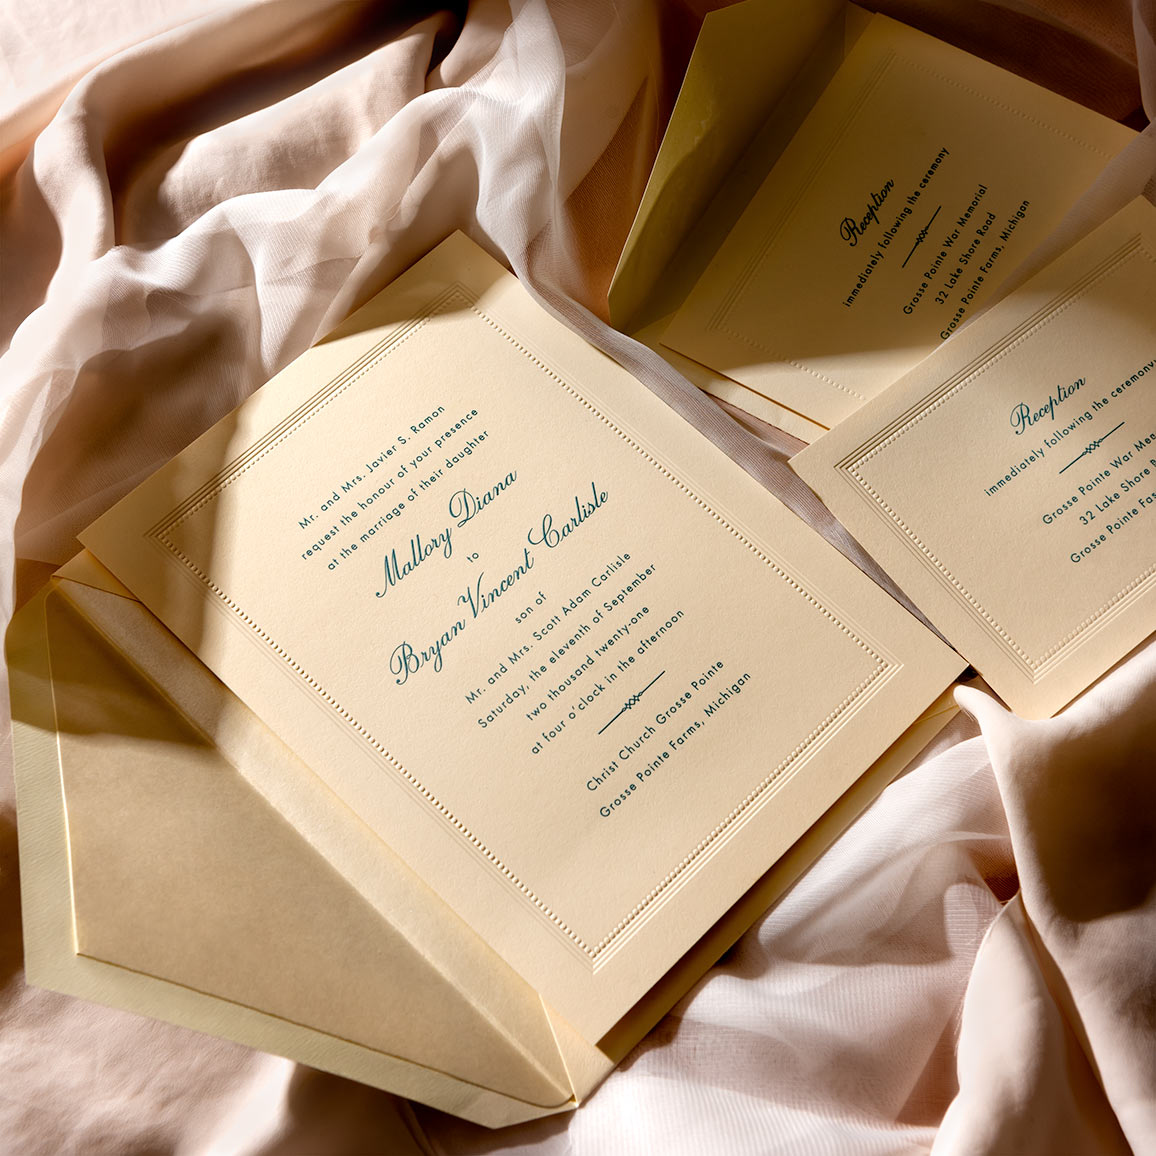 Mr. and Mrs. Javier S. Ramon
request the honour of your presence
at the marriage of their daughter
Mallory Diana
to
Bryan Vincent Carlisle
son of
Mr. and Mrs. Scott Adam Carlisle
Saturday, the eleventh of September
two thousand twenty-one
at four o'clock in the afternoon
Christ Church Grosse Pointe
Grosse Pointe Farms, Michigan
Reception
immediately following the ceremony
Grosse Pointe War Memorial
32 Lake Shore Road
Grosse Pointe Farms, Michigan
Reception
immediately following the ceremony
Grosse Pointe War
32 Lake Shore
Grosse Pointe